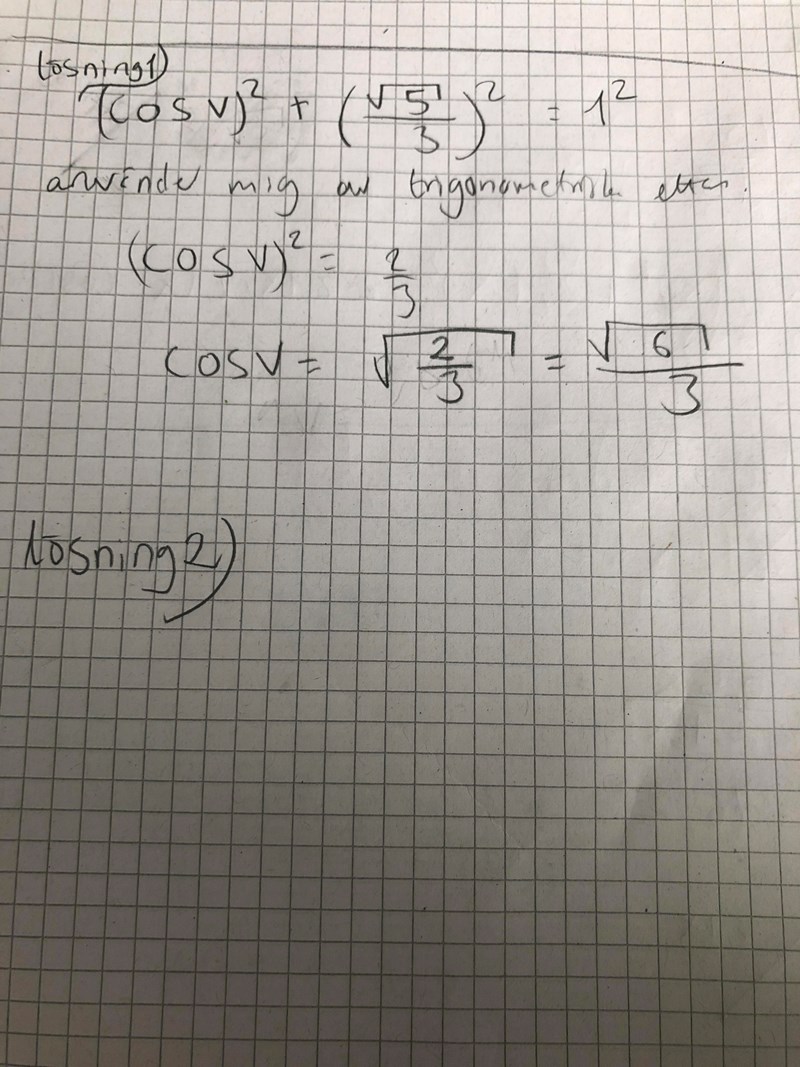 Lösning1)
(cos v)² + (√5/3)² = 1²
använde mig av trigonometrisk ettan.
(cos v)² = 2/3
cos v = √(2/3) = √6/3
Lösning2)